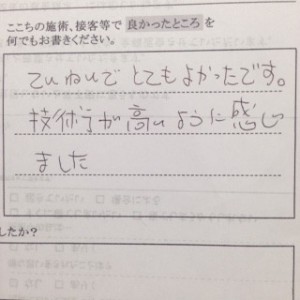 ここちの施術、接客等で良かったところを
何でもお書きください。
ていねいで とてもよかったです。
技術が高いように感じ
ました
したか?